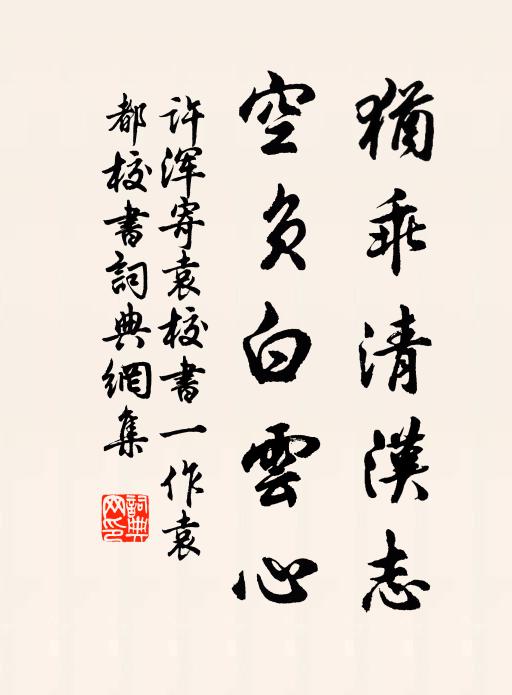 猶乖清漢志
空負白雲心
許渾寄袁校書一作袁
都校書詞典網集
詞典網印